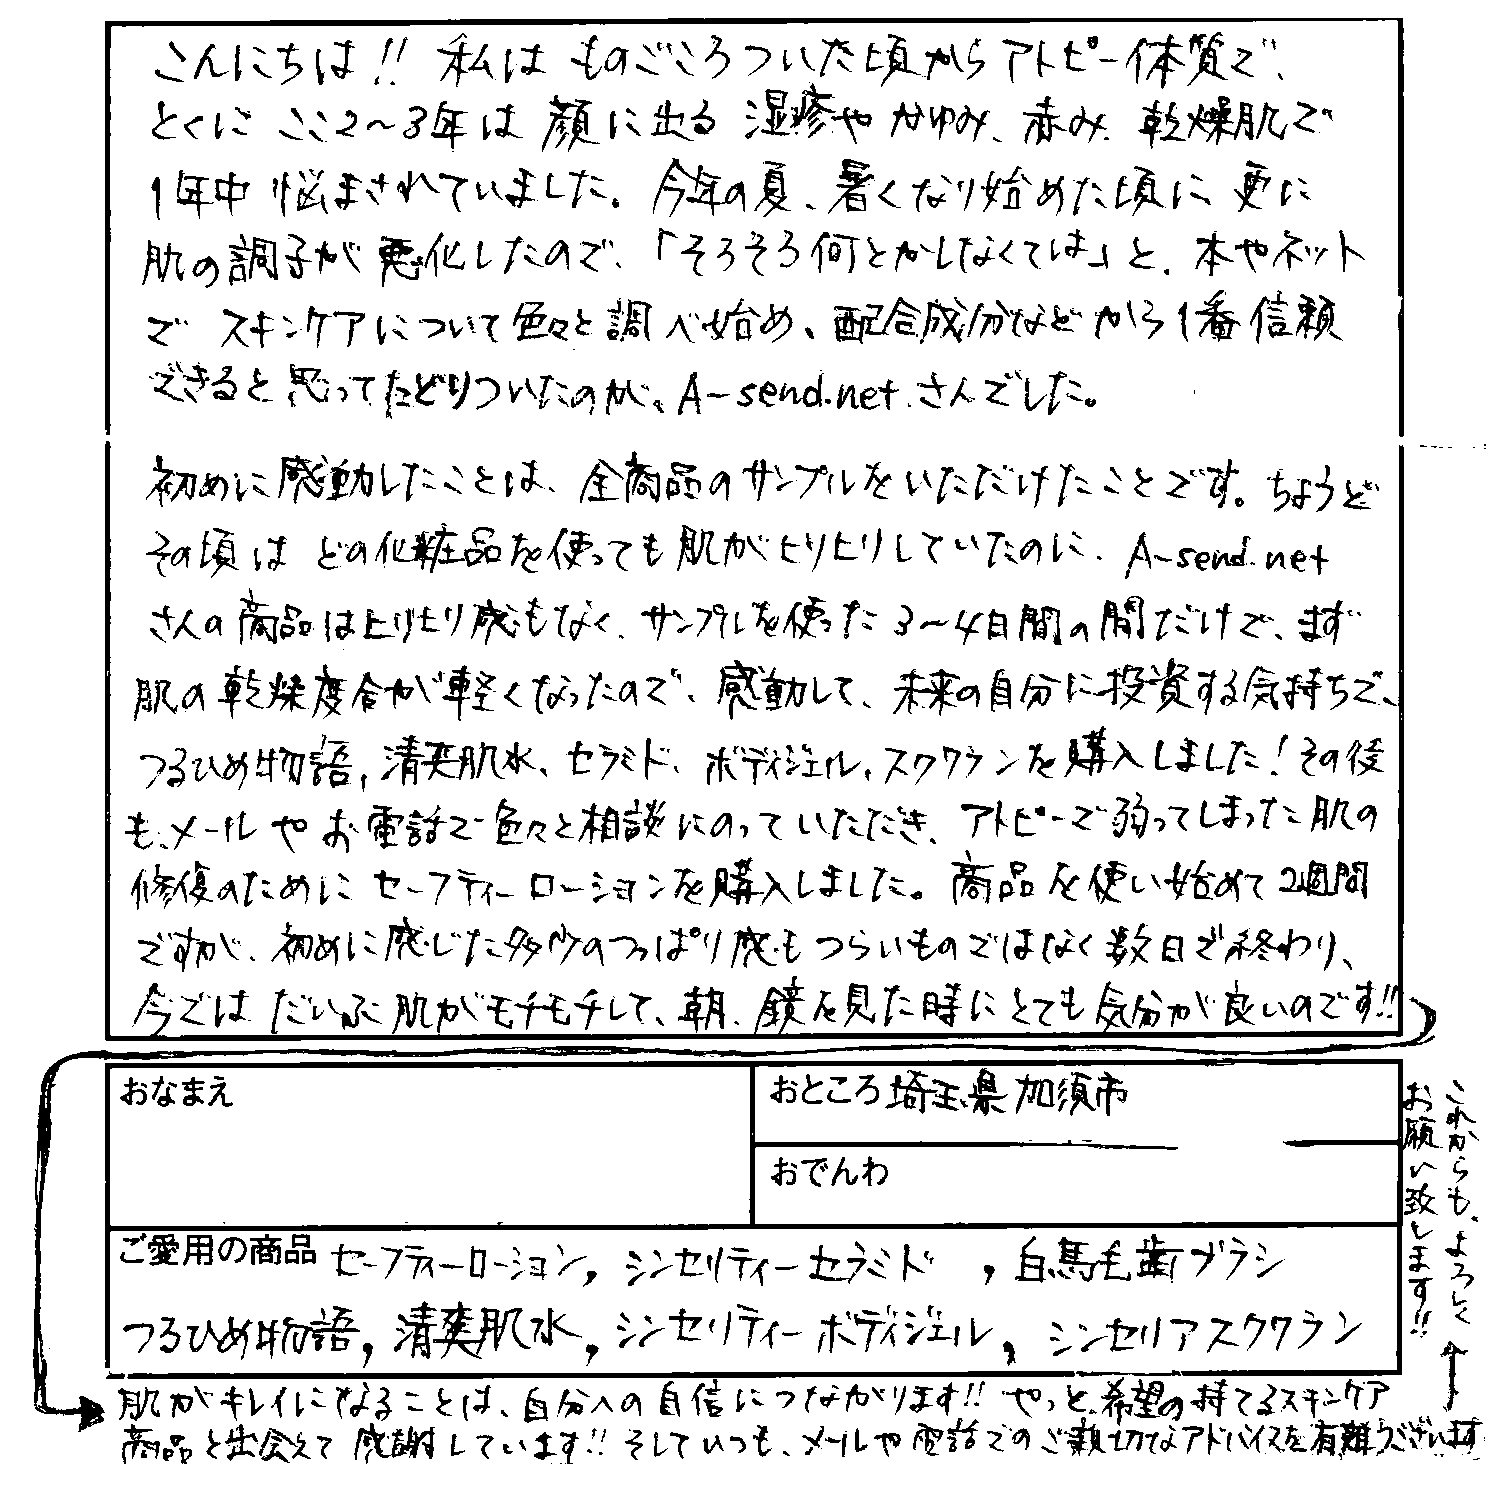 こんにちは!! 私は ものごころついた頃からアトピー体質で、
とくに ここ2〜3年は 顔に出る 湿疹や かゆみ、赤み、乾燥肌で
1年中 悩まされていました。今年の夏、暑くなり始めた頃に、更に
肌の調子が 悪化したので、「そろそろ何とかしなくては」と、本やネット
で スキンケアについて色々と調べ始め、配合成分などから1番信頼
できると思ってたどりついたのが、A-send.netさんでした。
初めに感動したことは、全商品のサンプルをいただけたことです。ちょうど
その頃は どの化粧品を使っても肌がヒリヒリしていたのに、A-send.net
さんの商品はヒリヒリ感もなく、サンプルを使った3〜4日間の間だけで、まず
肌の乾燥度合が軽くなったので、感動して、未来の自分に投資する気持ちで、
つるひめ物語,清爽肌水、セラミド、ボディジェル、スクワランを購入しました!その後
も、メールやお電話で色々と相談にのっていただき、アトピーで弱ってしまった肌の
修復のために セーフティーローションを購入しました。商品を使い始めて2週間
ですが、初めに感じた多少のつっぱり感もつらいものではなく数日で終わり、
今では だいぶ肌がモチモチして、朝、鏡を見た時にとても気分が良いのです!!
おなまえ
おところ 埼玉県加須市
おでんわ
ご愛用の商品 セーフティーローション, シンセリティーセラミド , 白馬毛歯ブラシ
つるひめ物語, 清爽肌水, シンセリティーボディジェル, シンセリアスクワラン
肌がキレイになることは、自分への自信につながります!! やっと、希望の持てるスキンケア
商品と出会えて 感謝しています!! そしていつも、メールや電話でのご親切なアドバイスを有難うございます
これからも、よろしく
お願い致します!!